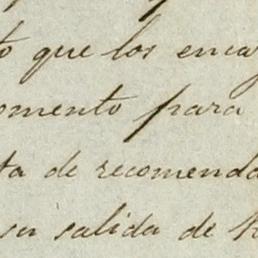 to que los encar
omento para
ta de recomenda
su salida de